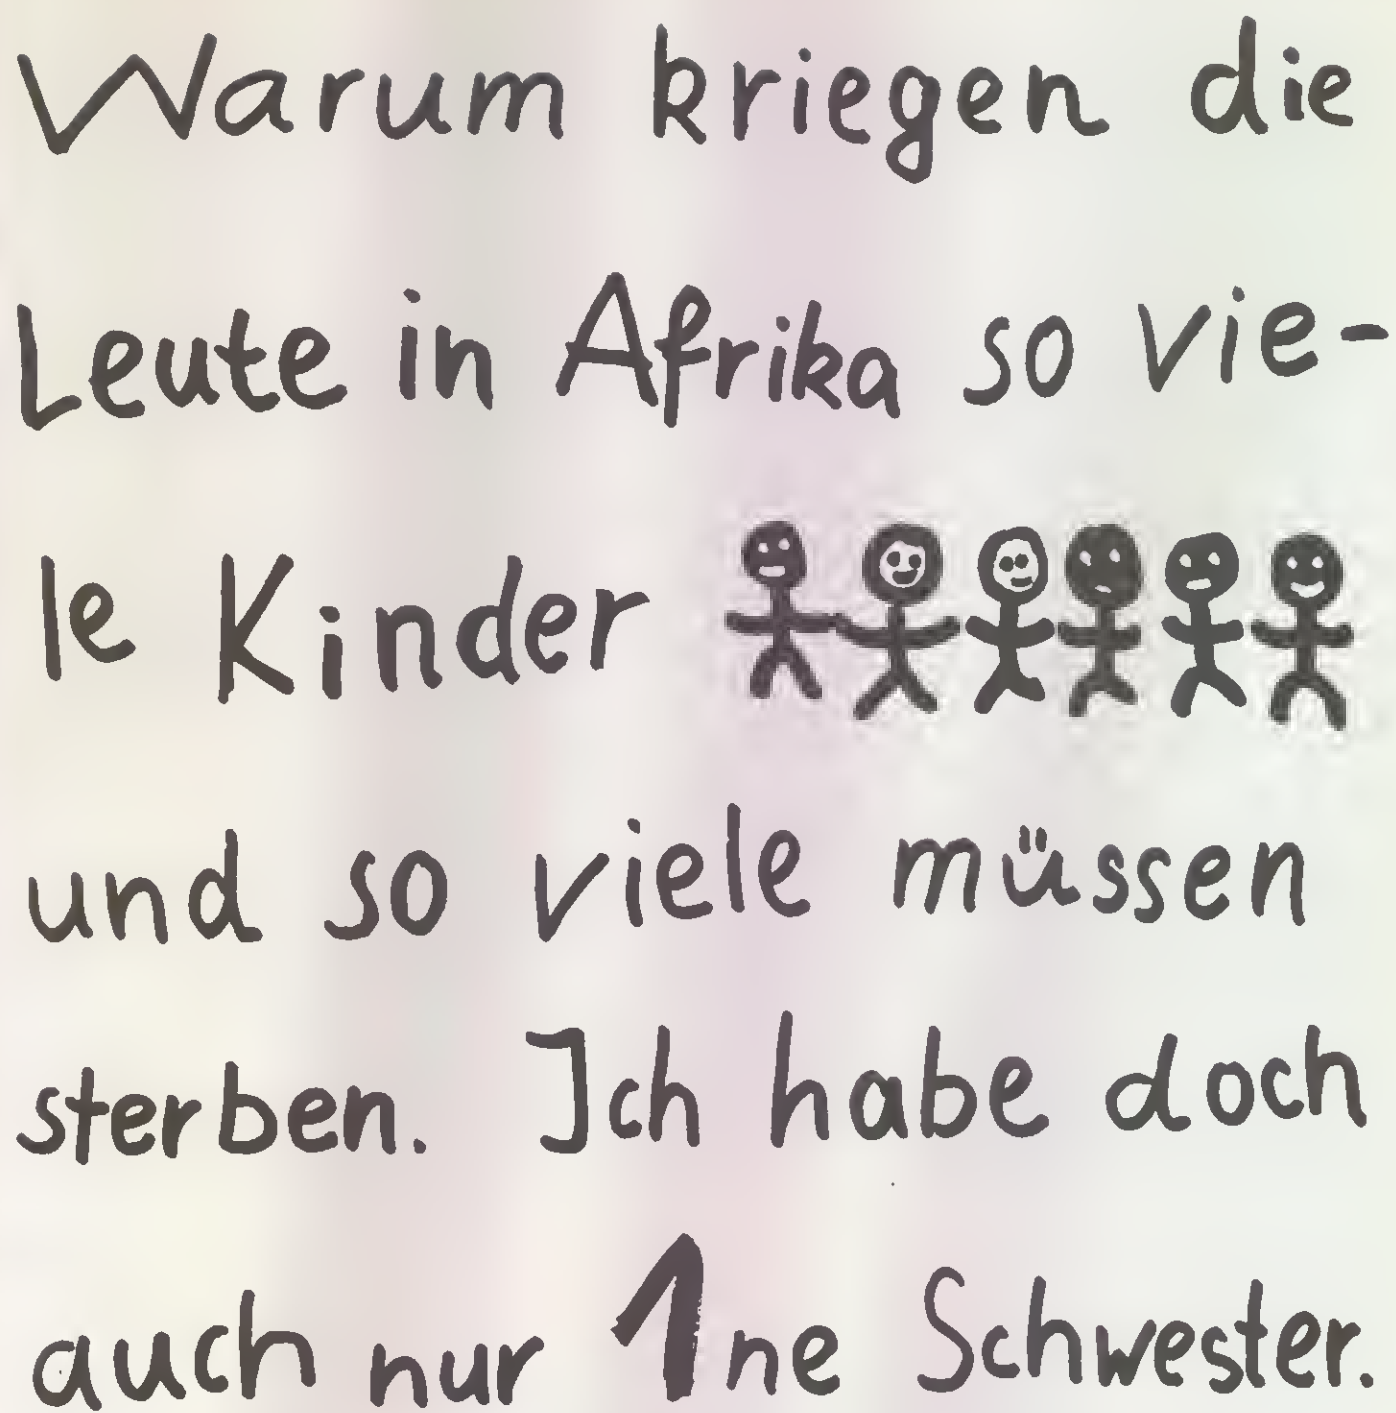 Warum kriegen die
Leute in Afrika so vie-
le Kinder
und so viele müssen
sterben. Ich habe doch
auch nur 1ne Schwester.